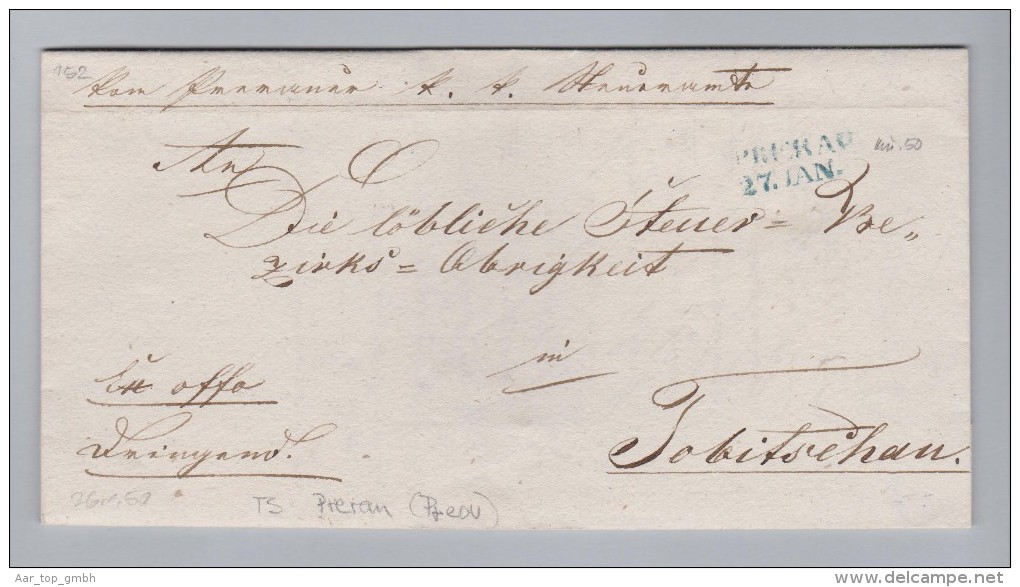 152
Vom Prerauer k. k. Steueramte
PRERAU
27. JAN.
An
Die löbliche Steuer= Be„
zirks= Obrigkeit
in
Ex offo
Tobitschau.
Dringend.
TS Prerau
Aar_top_gmbh
www.delcampe.net